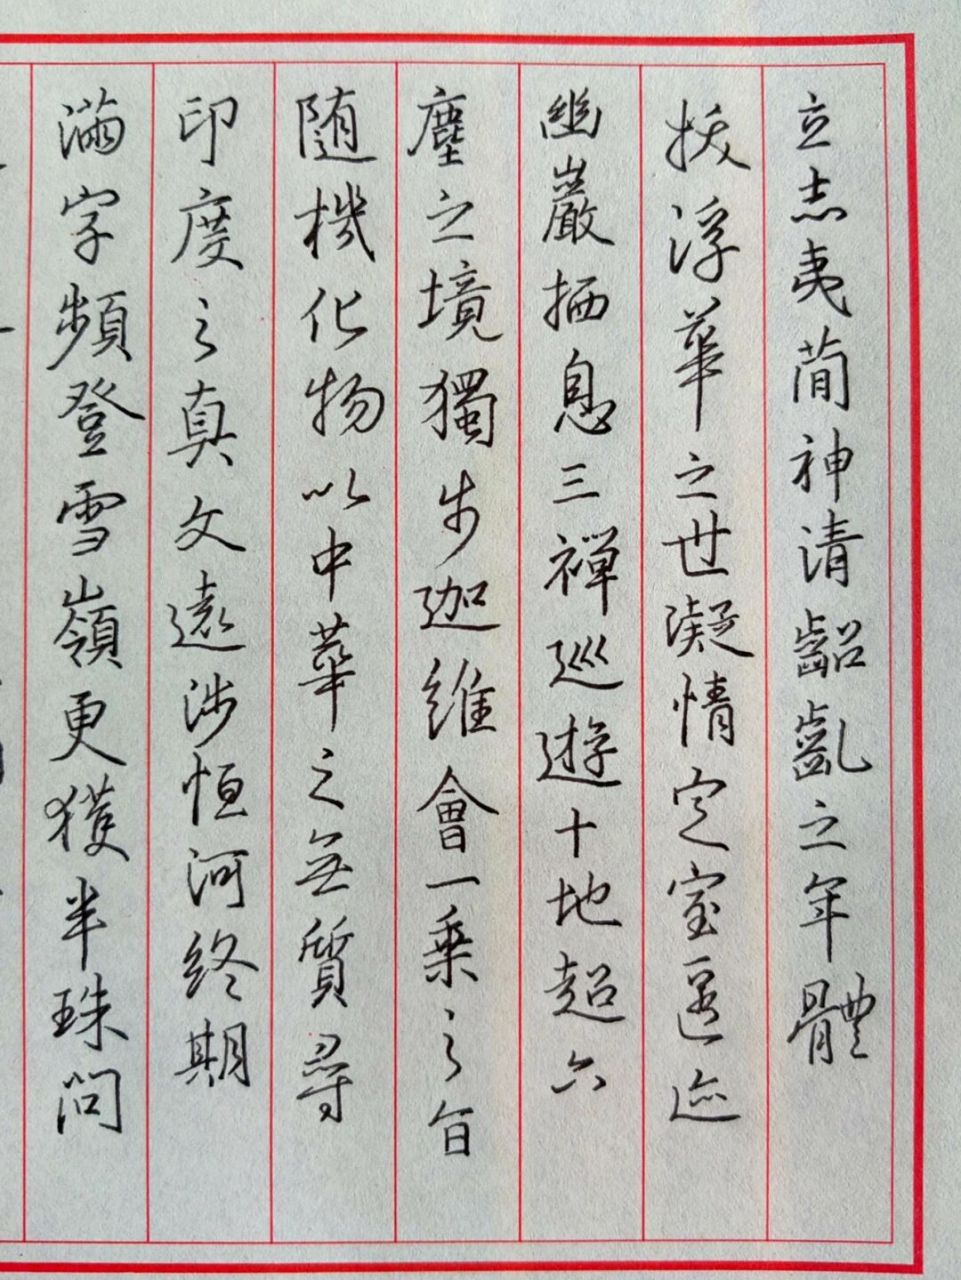 立志夷蕳神清齠齔之年體
拔浮華之世凝情定室匿迹
幽巖栖息三禪巡遊十地超六
塵之境獨步迦維會一乘之旨
随機化物以中華之無質尋
印度之真文遠涉恒河終期
滿字頻登雪嶺更獲半珠問